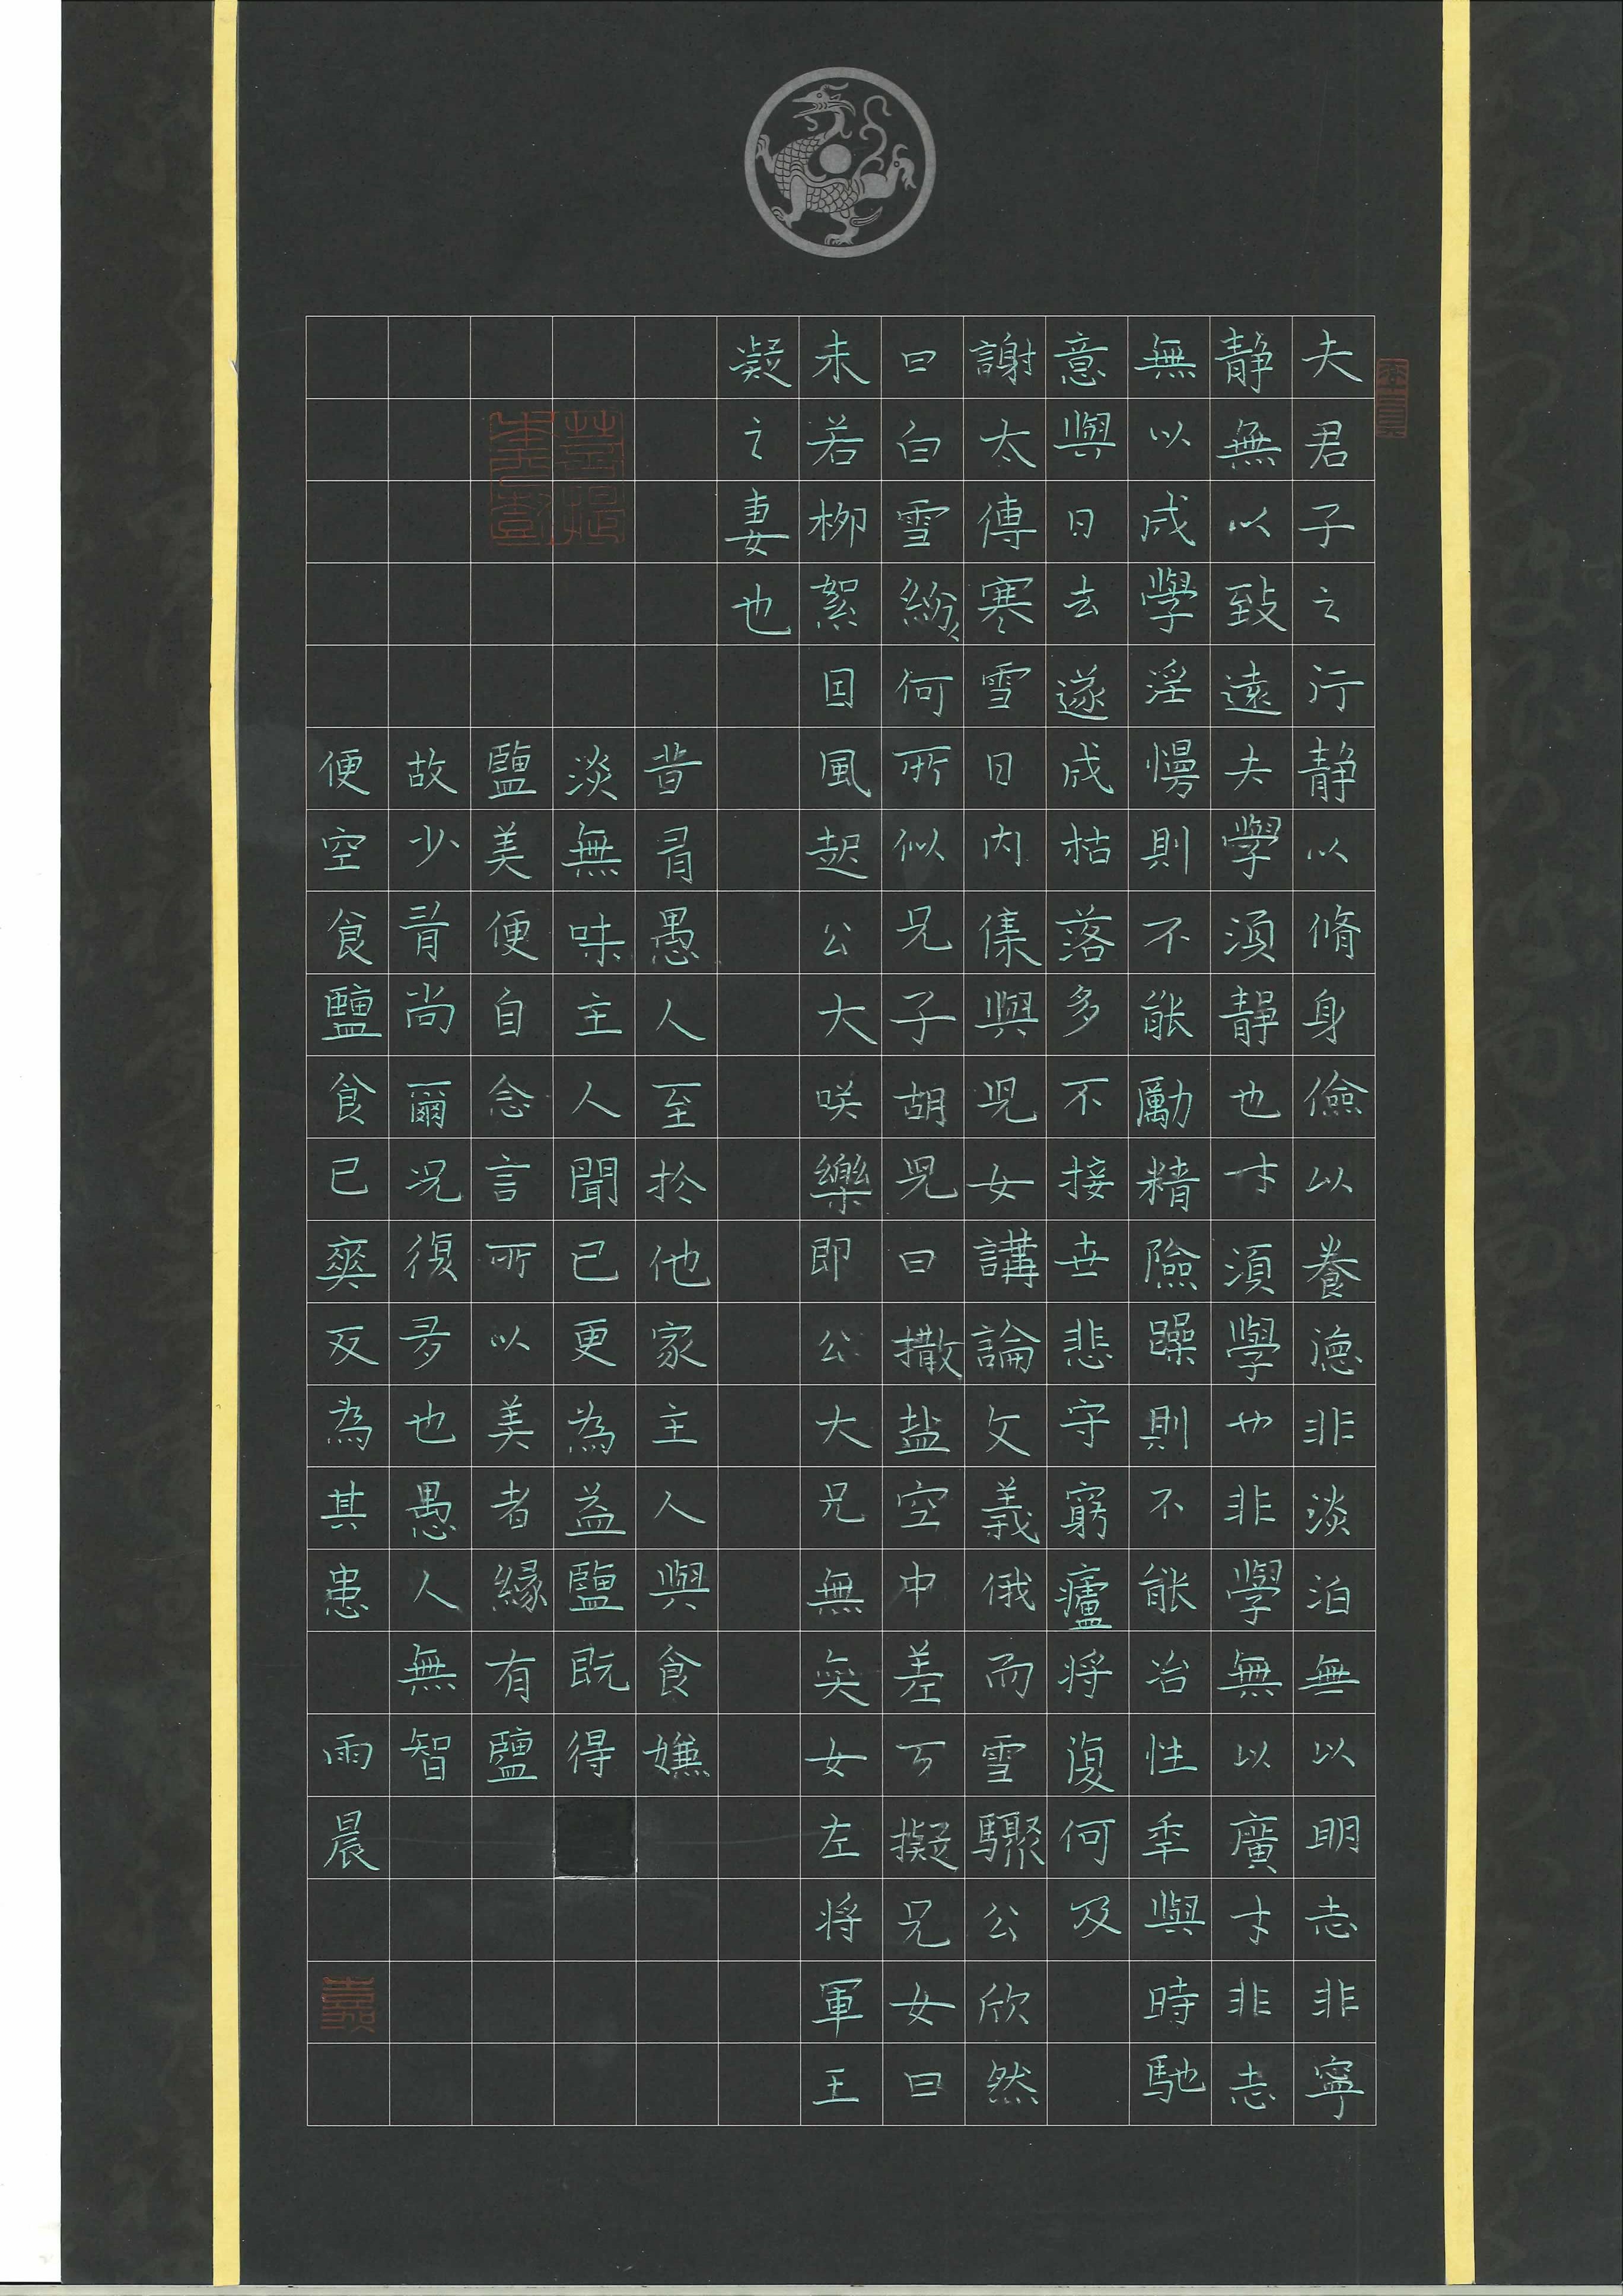 夫君子之行静以脩身儉以養德非淡泊無以明志非寧
静無以致遠夫學須靜也才須學也非學無以廣才非志
無以成學淫慢則不能勵精險躁則不能冶性年與時馳
意與日去遂成枯落多不接世悲守窮廬將復何及
謝太傅寒雪日内集與兒女講論文義俄而雪驟公欣然
曰白雪紛〻何所似兄子胡兒曰撒盐空中差可擬兄女曰
未若柳絮因風起公大咲樂即公大兄無奕女左将軍王
凝之妻也
昔有愚人至於他家主人與食嫌
淡無味主人聞已更為益鹽既得
鹽美便自念言所以美者緣有鹽
故少有尚爾况復多也愚人無智
便空食鹽食已爽反為其患 雨晨